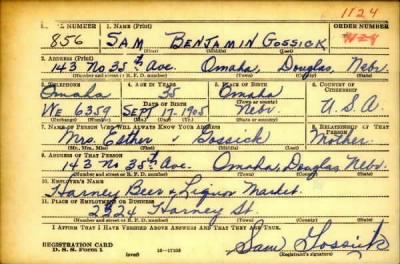 1124
SERIAL NUMBER 1. NAME (Print) ORDER NUMBER
856 SAM BENJAMIN GOSSICK 1124
(First) (Middle) (Last)
2. ADDRESS (Print)
143 No 35th Ave. Omaha, Douglas, Nebr.
(Number and street or R. F. D. number) (Town) (County) (State)
3. TELEPHONE 4. AGE IN YEARS 5. PLACE OF BIRTH 6. COUNTRY OF CITIZENSHIP
Omaha 35 Omaha
DATE OF BIRTH (Town or county)
We 6359 SEPT 17-1905 Nebr. U.S.A
(Exchange) (Number) (Mo.) (Day) (Yr.) (State or country)
7. NAME OF PERSON WHO WILL ALWAYS KNOW YOUR ADDRESS 8. RELATIONSHIP OF THAT PERSON
Mrs. Gossick Mother
(Mr., Mrs., Miss) (First) (Middle) (Last)
9. ADDRESS OF THAT PERSON
143 No 35th Ave. Omaha, Douglas, Nebr.
(Number and street or R. F. D. number) (Town) (County) (State)
10. EMPLOYER'S NAME
Harney Beer & Liquor Market.
11. PLACE OF EMPLOYMENT OR BUSINESS
2524 Harney St.
(Number and street or R. F. D. number) (Town) (County) (State)
I AFFIRM THAT I HAVE VERIFIED ABOVE ANSWERS AND THAT THEY ARE TRUE.
REGISTRATION CARD
D. S. S. Form 1 (over) Sam Gossick
(Registrant's signature)